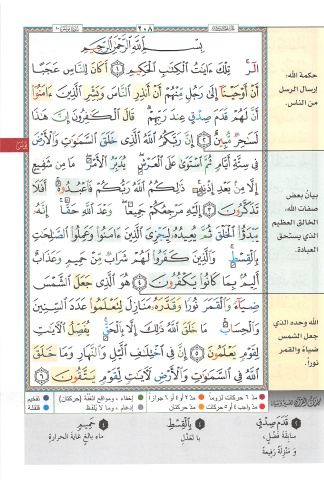 ٢٠٨
بِسْمِ اللَّهِ الرَّحْمَٰنِ الرَّحِيمِ
الٓر ۚ تِلْكَ ءَايَٰتُ الْكِتَٰبِ الْحَكِيمِ ١ أَكَانَ لِلنَّاسِ عَجَبًا
أَنْ أَوْحَيْنَآ إِلَىٰ رَجُلٍ مِّنْهُمْ أَنْ أَنذِرِ النَّاسَ وَبَشِّرِ الَّذِينَ ءَامَنُوٓا۟
أَنَّ لَهُمْ قَدَمَ صِدْقٍ عِندَ رَبِّهِمْ ۗ قَالَ الْكَٰفِرُونَ إِنَّ هَٰذَا
لَسَٰحِرٌ مُّبِينٌ ٢ إِنَّ رَبَّكُمُ اللَّهُ الَّذِى خَلَقَ السَّمَٰوَٰتِ وَالْأَرْضَ
فِى سِتَّةِ أَيَّامٍ ثُمَّ اسْتَوَىٰ عَلَى الْعَرْشِ ۖ يُدَبِّرُ الْأَمْرَ ۖ مَا مِن شَفِيعٍ
إِلَّا مِنۢ بَعْدِ إِذْنِهِۦ ۚ ذَٰلِكُمُ اللَّهُ رَبُّكُمْ فَاعْبُدُوهُ ۚ أَفَلَا
تَذَكَّرُونَ ٣ إِلَيْهِ مَرْجِعُكُمْ جَمِيعًا ۖ وَعْدَ اللَّهِ حَقًّا ۚ إِنَّهُۥ
يَبْدَؤُا۟ الْخَلْقَ ثُمَّ يُعِيدُهُۥ لِيَجْزِىَ الَّذِينَ ءَامَنُوا۟ وَعَمِلُوا۟ الصَّٰلِحَٰتِ
بِالْقِسْطِ ۚ وَالَّذِينَ كَفَرُوا۟ لَهُمْ شَرَابٌ مِّنْ حَمِيمٍ وَعَذَابٌ
أَلِيمٌۢ بِمَا كَانُوا۟ يَكْفُرُونَ ٤ هُوَ الَّذِى جَعَلَ الشَّمْسَ
ضِيَآءً وَالْقَمَرَ نُورًا وَقَدَّرَهُۥ مَنَازِلَ لِتَعْلَمُوا۟ عَدَدَ السِّنِينَ
وَالْحِسَابَ ۚ مَا خَلَقَ اللَّهُ ذَٰلِكَ إِلَّا بِالْحَقِّ ۚ يُفَصِّلُ الْءَايَٰتِ
لِقَوْمٍ يَعْلَمُونَ ٥ إِنَّ فِى اخْتِلَٰفِ الَّيْلِ وَالنَّهَارِ وَمَا خَلَقَ
اللَّهُ فِى السَّمَٰوَٰتِ وَالْأَرْضِ لَءَايَٰتٍ لِّقَوْمٍ يَتَّقُونَ ٦
حكمة الله:
إرسال الرسل
من الناس.
بيان بعض
صفات الله،
الخالق العظيم
الذي يستحق
العبادة.
الله وحده الذي
جعل الشمس
ضياءً والقمر
نوراً.
يونس
مدّ ٦ حركات لزوماً
مدّ ٢ أو ٤ أو ٦ جوازاً
إخفاء، ومواقع الغنّة (حركتان)
تفخيم
مدّ واجب ٤ أو ٥ حركات
مدّ حركتان
إدغام، وما لا يُلفظ
قلقلة
٢ قَدَمَ صِدْقٍ
سابِقَةَ فَضْلٍ،
وَ مَنْزِلَةً رَفِيعةً
٤ بِالْقِسْطِ
بالعَدْلِ
٤ حَمِيمٍ
ماءٍ بالغٍ غايةَ الحرارةِ